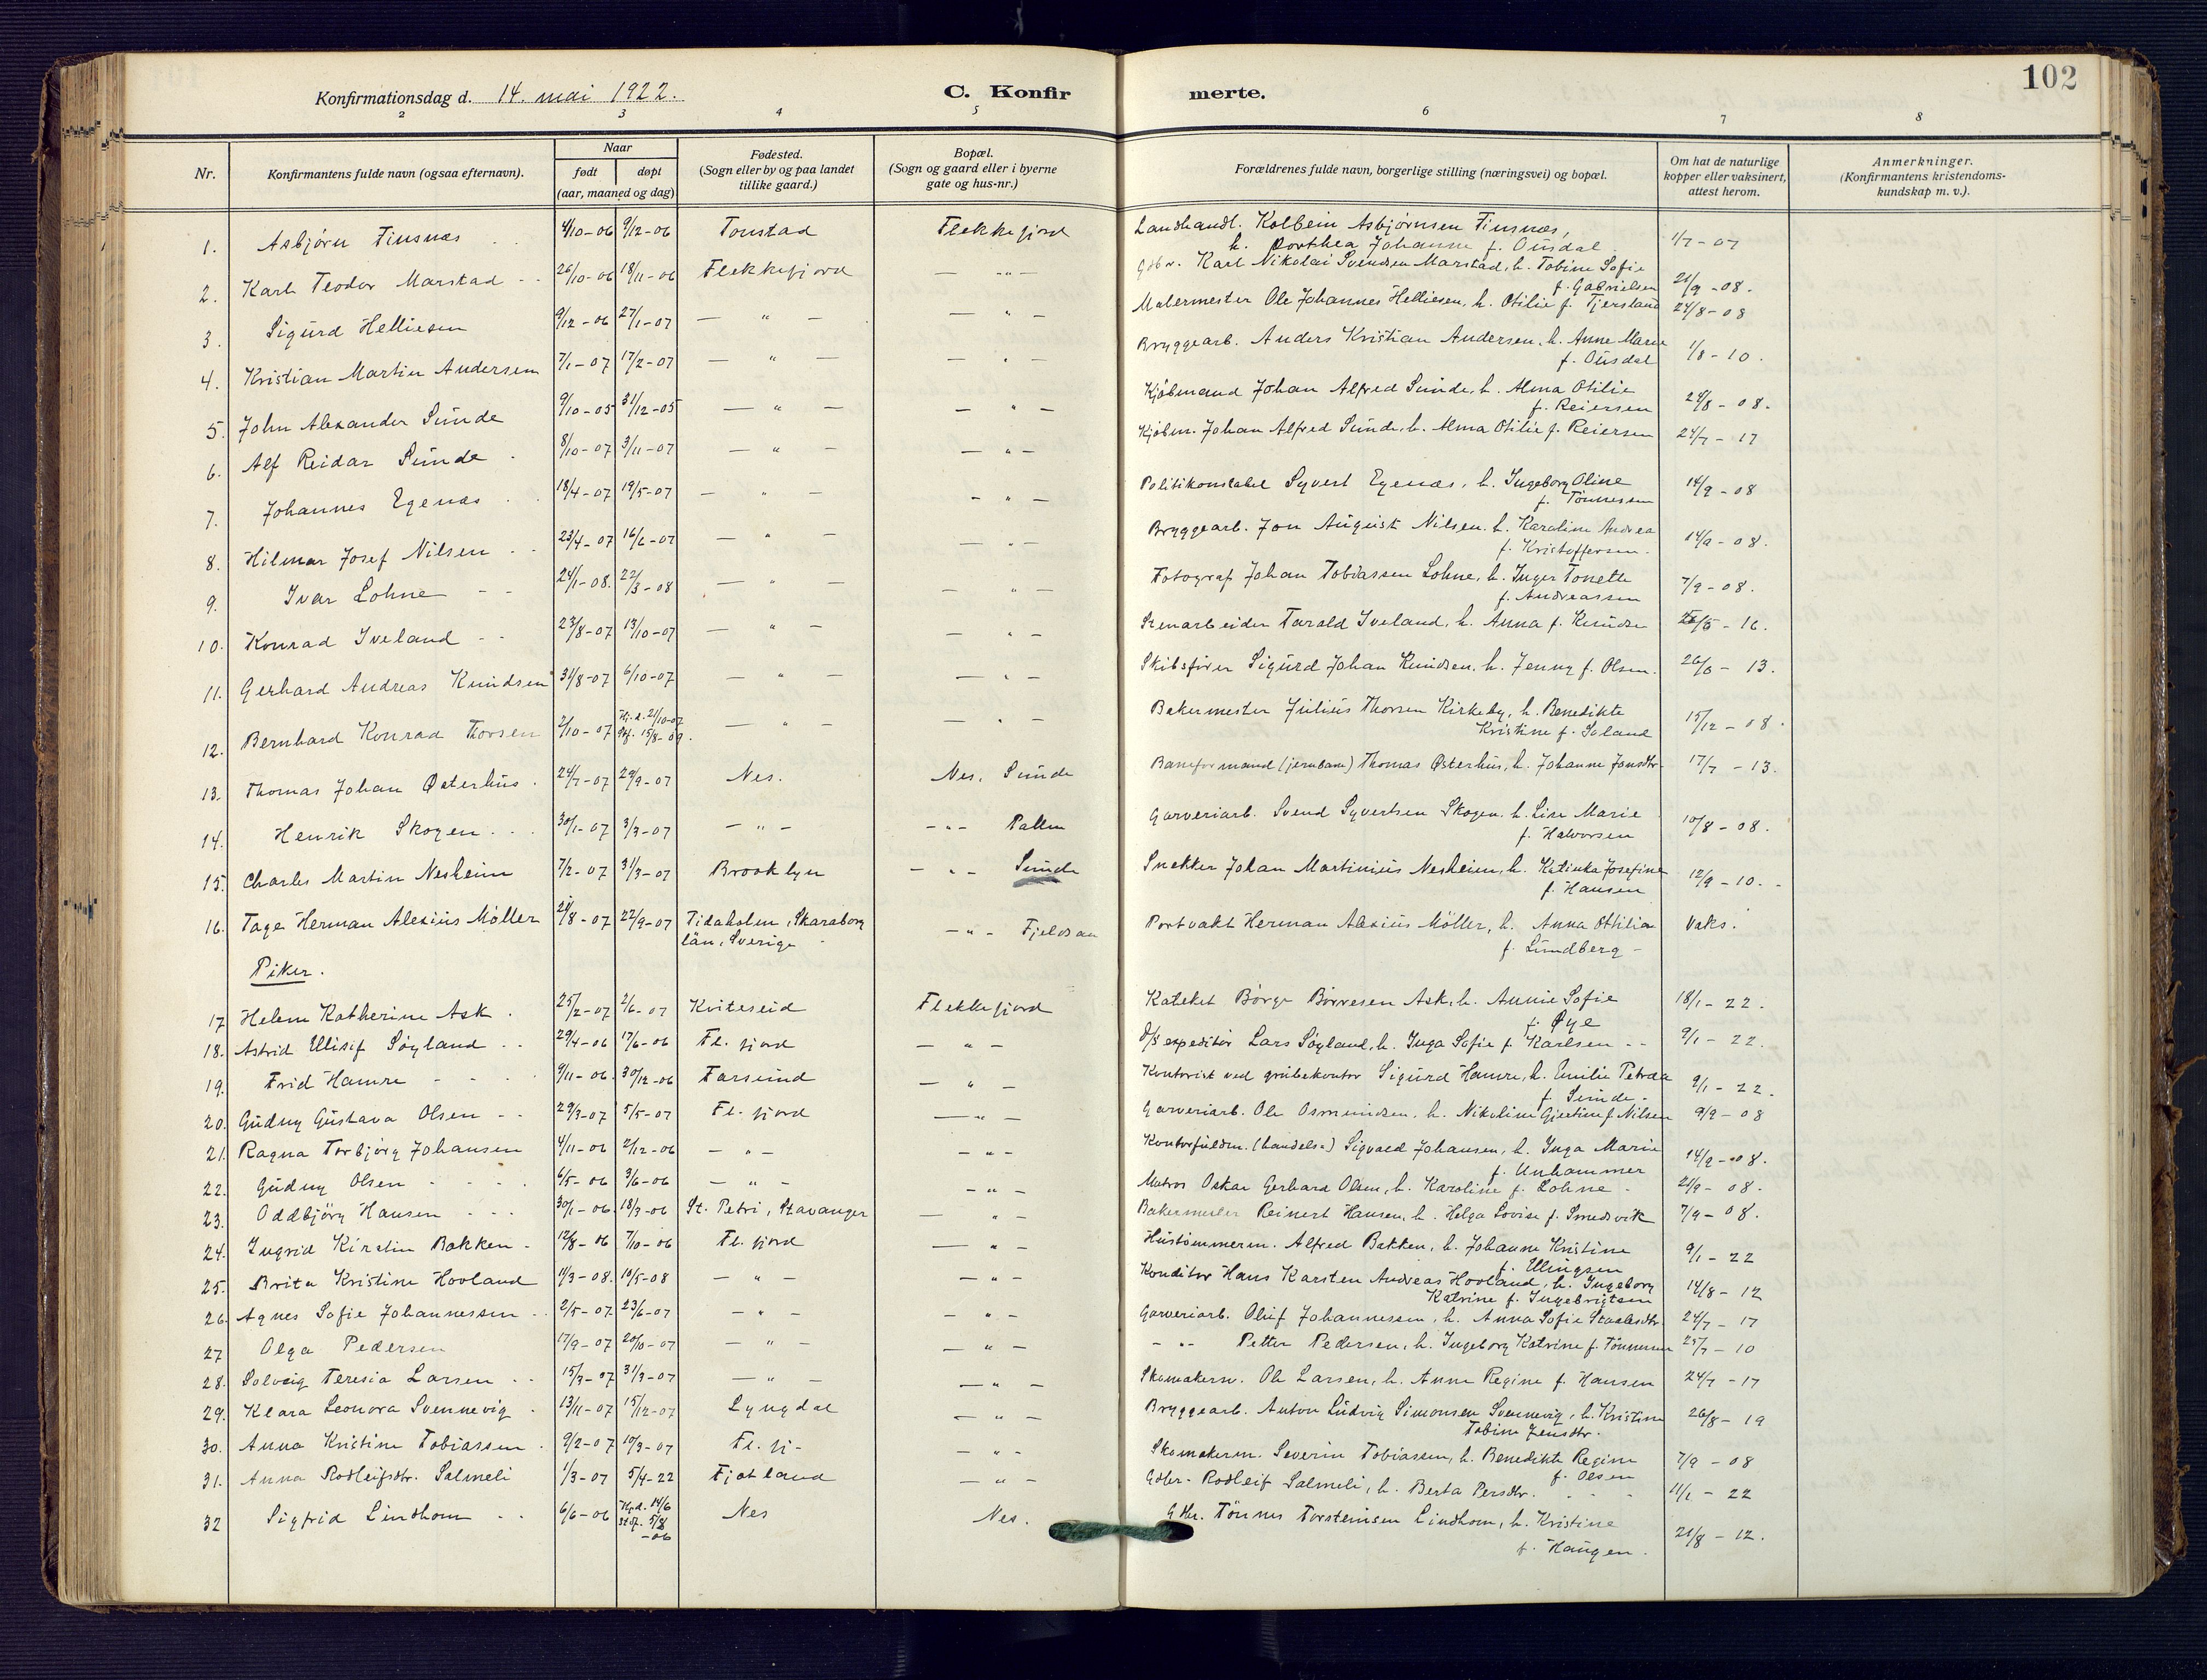 102
Konfirmationsdag d. 14. mai 1922.
C. Konfir merte.
2 3 4 5 6 7 8
Nr.
Konfirmantens fulde navn (ogsaa efternavn).
Naar
født døpt
(aar, maaned og dag)
Fødested.
(Sogn eller by og paa landet
tillike gaard.)
Bopæl.
(Sogn og gaard eller i byerne
gate og hus-nr.)
Forældrenes fulde navn, borgerlige stilling (næringsvei) og bopæl.
Om hat de naturlige
kopper eller vaksinert,
attest herom.
Anmerkninger.
(Konfirmantens kristendoms-
kundskap m. v.).
1. Asbjørn Finsnæs 4/10-06 9/12-06 Tonstad Flekkefjord Landhandl. Kolbein Asbjørnsen Finsnæs, 1/7-07
h. Dorthea Johanne f. Ousdal.
2. Karl Teodor Marstad 26/10-06 18/11-06 Flekkefjord — " — Gdbr. Karl Nikolai Svendsen Marstad, h. Tobine Sofie
f. Gabrielsen 21/9-08.
3. Sigurd Helliesen 9/12-06 27/1-07 — " — — " — Malermester Ole Johannes Helliesen, h. Otilie f. Tjersland 24/8-08
4. Kristian Martin Andersen 7/1-07 17/2-07 — " — — " — Bryggearb. Anders Kristian Andersen, h. Anne Marie
f. Ousdal 1/8-10.
5. John Alexander Sunde 9/10-05 31/12-05 — " — — " — Kjøbmand Johan Alfred Sunde, h. Alma Otilie
f. Reiersen 24/8-08.
6. Alf Reidar Sunde 8/10-07 3/11-07 — " — — " — Kjøbm. Johan Alfred Sunde, h. Alma Otilie f. Reiersen 24/7-17
7. Johannes Egenæs 18/4-07 19/5-07 — " — — " — Politikonstabel Syvert Egenæs, h. Ingeborg Oline
f. Tønnessen 14/9-08
8. Hilmar Josef Nilsen 23/4-07 16/6-07 — " — — " — Bryggearb. Jon August Nilsen, h. Karoline Andrea
f. Kristoffersen. 14/9-08.
9. Ivar Lohne 24/1-08. 22/3-08 — " — — " — Fotograf Johan Tobiassen Lohne, h. Inger Tonette
f. Andreassen 7/9-08.
10. Konrad Iveland 23/8-07 13/10-07 — " — — " — Stenarbeider Tarald Iveland, h. Anna f. Knudsen /5-16.
11. Gerhard Andreas Knudsen 31/8-07 6/10-07 — " — — " — Skibsfører Sigurd Johan Knudsen, h. Jenny f. Olsen. 26/6-13.
12. Bernhard Konrad Thorsen 2/10-07 Hj. d. 21/10-07
15/8-09. — " — — " — Bakermester Julius Thorsen Kirkeby, h. Benedikte
Kristine f. Soland 15/12-08.
13. Thomas Johan Østerhus 24/7-07 29/9-07 Nes. Nes, Sunde Baneformand (jernbane) Thomas Østerhus, h. Johanne Jonsdtr. 17/7-13.
14. Henrik Skogen 30/1-07 3/3-07 — " — — " — Pallen Garveriarb. Svend Syvertsen Skogen, h. Lise Marie
f. Halvorsen 10/8-08.
15. Charles Martin Nesheim 7/2-07 31/3-07 Brooklyn — " — Sunde Snekker Johan Martinius Nesheim, h. Katinka Josefine
f. Hansen 12/9-10.
16. Tage Herman Alexius Möller 20/8-07 22/9-07 Tidaholm, Skaraborg — " — Fjeldsaa Portvakt Herman Alexius Möller, h. Anna Ottilia Vaks.
län, Sverige f. Lundberg
Piker.
17 Helene Katherine Ask 25/2-07 2/6-07 Kviteseid Flekkefjord Kateket Børge Børresen Ask, h. Annie Sofie 18/1-22.
f. Øye
18. Astrid Ellisif Søyland 29/4-06 17/6-06 Fl. fjord — " — D/S expeditør Lars Søyland, h. Inga Sofie f. Karlsen 9/1-22.
19. Frid Hamre 9/11-06. 30/12-06 Farsund — " — Kontorist ved grubekontor Sigurd Hamre, h. Emilie Petrea 9/1-22.
f. Sunde
20. Gudny Gustava Olsen 29/3-07 5/5-07 Fl. fjord — " — Garveriarb. Ole Osmundsen, h. Nikoline Gjertine f. Nilsen 9/9-08
21. Ragna Torbjørg Johansen 4/11-06 2/12-06 — " — — " — Kontorfuldm. (handels-) Sigvald Johansen, h. Inga Marie
f. Unhammer 14/9-08.
22. Gudny Olsen 6/5-06 3/6-06 — " — — " — Matros Oskar Gerhard Olsen, h. Karoline f. Lohne 21/9-08.
23. Oddbjörg Hansen 30/1-06. 18/3-06 St. Petri, Stavanger — " — Bakermester Reinert Hansen, h. Helga Lovise f. Smedsvik 7/9-08.
24. Ingrid Kirstin Bakken 12/8-06 7/10-06 Fl. fjord — " — Hustømmerm. Alfred Bakken, h. Johanne Kristine 9/1-22
f. Ellingsen
25. Brita Kristine Hovland 11/3-08. 10/5-08 — " — — " — Konditor Hans Karsten Andreas Hovland, h. Ingeborg 14/8-12
Katrine f. Ingebrigtsen
26. Agnes Sofie Johannessen 2/5-07 23/6-07 — " — — " — Garveriarb. Oluf Johannessen, h. Anna Sofie Staalesdtr. 24/7-17
27 Olga Pedersen 17/9-07 20/10-07 — " — — " — — " — Petter Pedersen, h. Ingeborg Katrine f. Tønnesen 25/7-10
28. Solveig Teresia Larsen 15/3-07 31/3-07 — " — — " — Skomakersv. Ole Larsen, h. Anne Regine f. Hansen 24/7-17
29. Klara Leonora Svennevig 13/11-07 15/12-07 Lyngdal — " — Bryggearb. Anton Ludvig Simonsen Svennevig, h. Kristine 26/8-19
Tobine Jensdtr.
30. Anna Kristine Tobiassen 9/2-07 10/3-07 Fl. fj- — " — Skomakerm. Severin Tobiassen, h. Benedikte Regine 7/9-08
f. Olsen
31. Anna Rodleifsdtr. Salmeli 1/3-07 5/4-22 Fjotland — " — Gdbr. Rodleif Salmeli, h. Berta Persdtr. 11/1-22
32 Sigfrid Lindhom 6/6-06 Hj. d. 14/6
stdf. 5/8
-06 Nes Nes. Gdbr. Tønnes Torsteinsen Lindhom, h. Kristine
f. Haugen. 21/8-12.